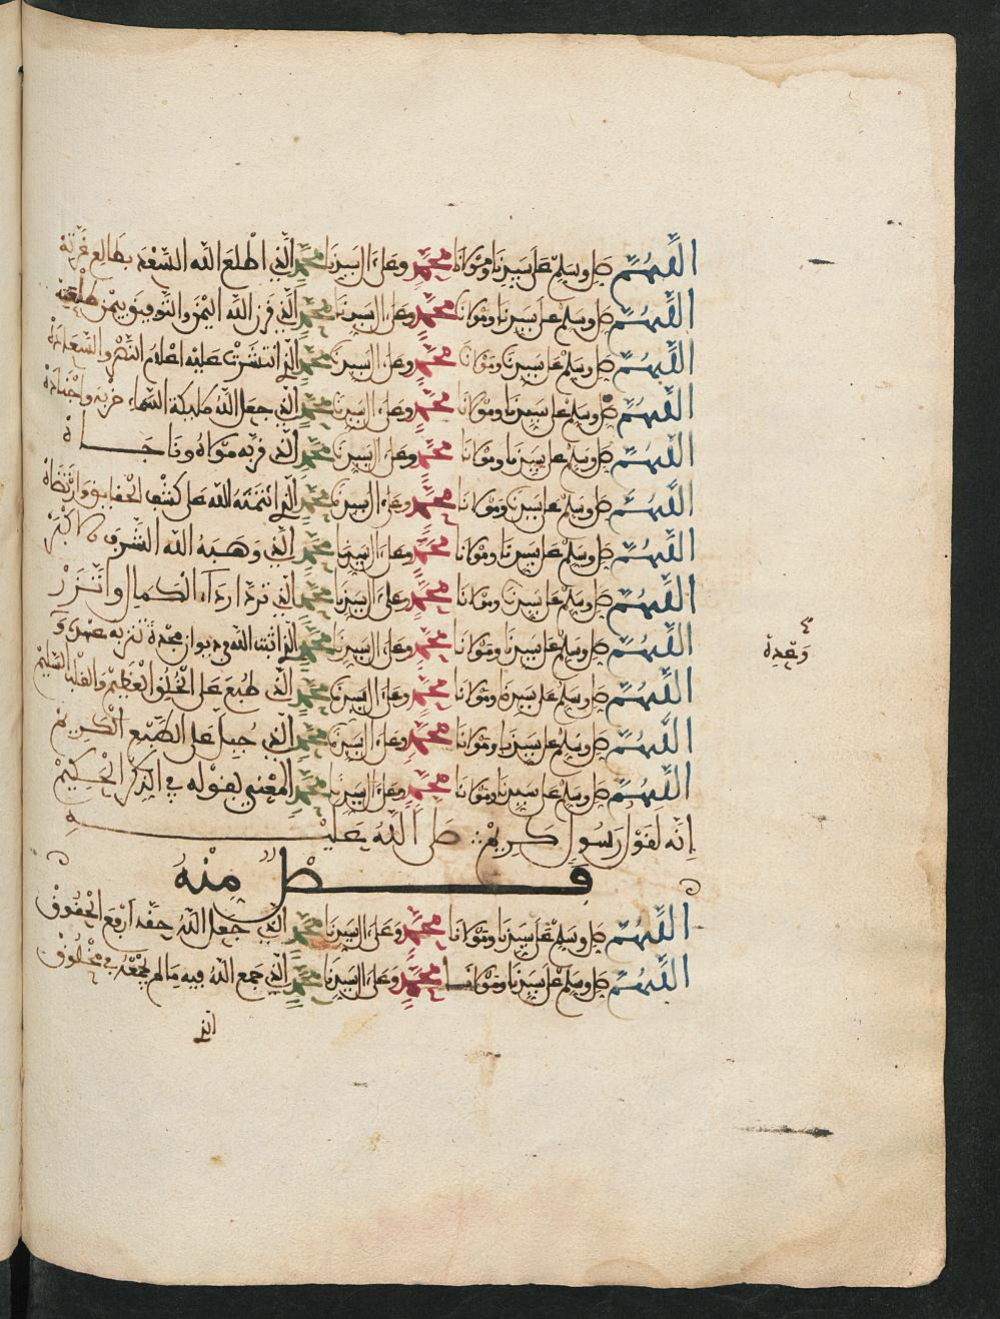 اللَّهُمَّ صل وسلم على سيدنا ومولانا محمد وعلى ءال سيدنا محمد الذي اطلع الله السعد بطالع غرته
اللَّهُمَّ صل وسلم على سيدنا ومولانا محمد وعلى ءال سيدنا محمد الذي قرن الله اليمن والتوفيق بيمن طلعته
اللَّهُمَّ صل وسلم على سيدنا ومولانا محمد وعلى ءال سيدنا محمد الذي انتشرت عليه اعلام النصر والسعادة
اللَّهُمَّ صل وسلم على سيدنا ومولانا محمد وعلى ءال سيدنا محمد الذي جعل الله ملبكة السماء حزبه واجناده
اللَّهُمَّ صل وسلم على سيدنا ومولانا محمد وعلى ءال سيدنا محمد الذي قربه مولاه وناجاه
اللَّهُمَّ صل وسلم على سيدنا ومولانا محمد وعلى ءال سيدنا محمد الذي ائتمنه الله على كشف الحقايق وارتضاه
اللَّهُمَّ صل وسلم على سيدنا ومولانا محمد وعلى ءال سيدنا محمد الذي وهبه الله الشرف الاكبر
اللَّهُمَّ صل وسلم على سيدنا ومولانا محمد وعلى ءال سيدنا محمد الذي تردا رداء الكمال واتزر
اللَّهُمَّ صل وسلم على سيدنا ومولانا محمد وعلى ءال سيدنا محمد الذي اثبت الله في ديوان مجده
اللَّهُمَّ صل وسلم على سيدنا ومولانا محمد وعلى ءال سيدنا محمد الذي طبع على الخلق العظيم والقلب السليم
اللَّهُمَّ صل وسلم على سيدنا ومولانا محمد وعلى ءال سيدنا محمد الذي جبل على الطبع الكريم
اللَّهُمَّ صل وسلم على سيدنا ومولانا محمد وعلى ءال سيدنا محمد المعني بقوله في الذكر الحكيم
إنه لقول رسول كريم صلى الله عليه
فصل منه
اللَّهُمَّ صل وسلم على سيدنا ومولانا محمد وعلى ءال سيدنا محمد الذي جعل الله حقه أرفع الحقوق
اللَّهُمَّ صل وسلم على سيدنا ومولانا محمد وعلى ءال سيدنا محمد الذي جمع الله فيه مالم يجمعه في مخلوق
الذي